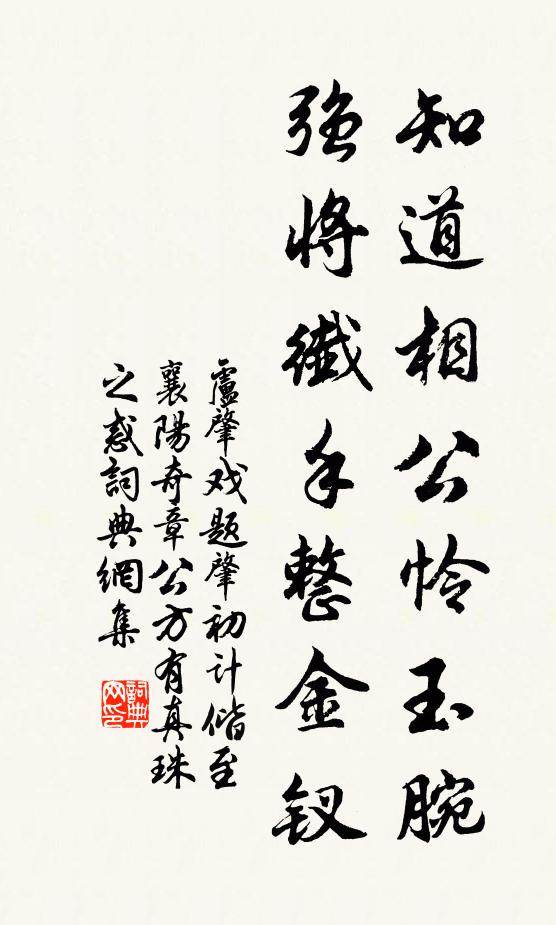 知道相公怜玉腕
强將纖手整金釵
盧肇戏题肇初计偕至
襄陽奇章公方有真珠
之惑詞典網集
詞典网印